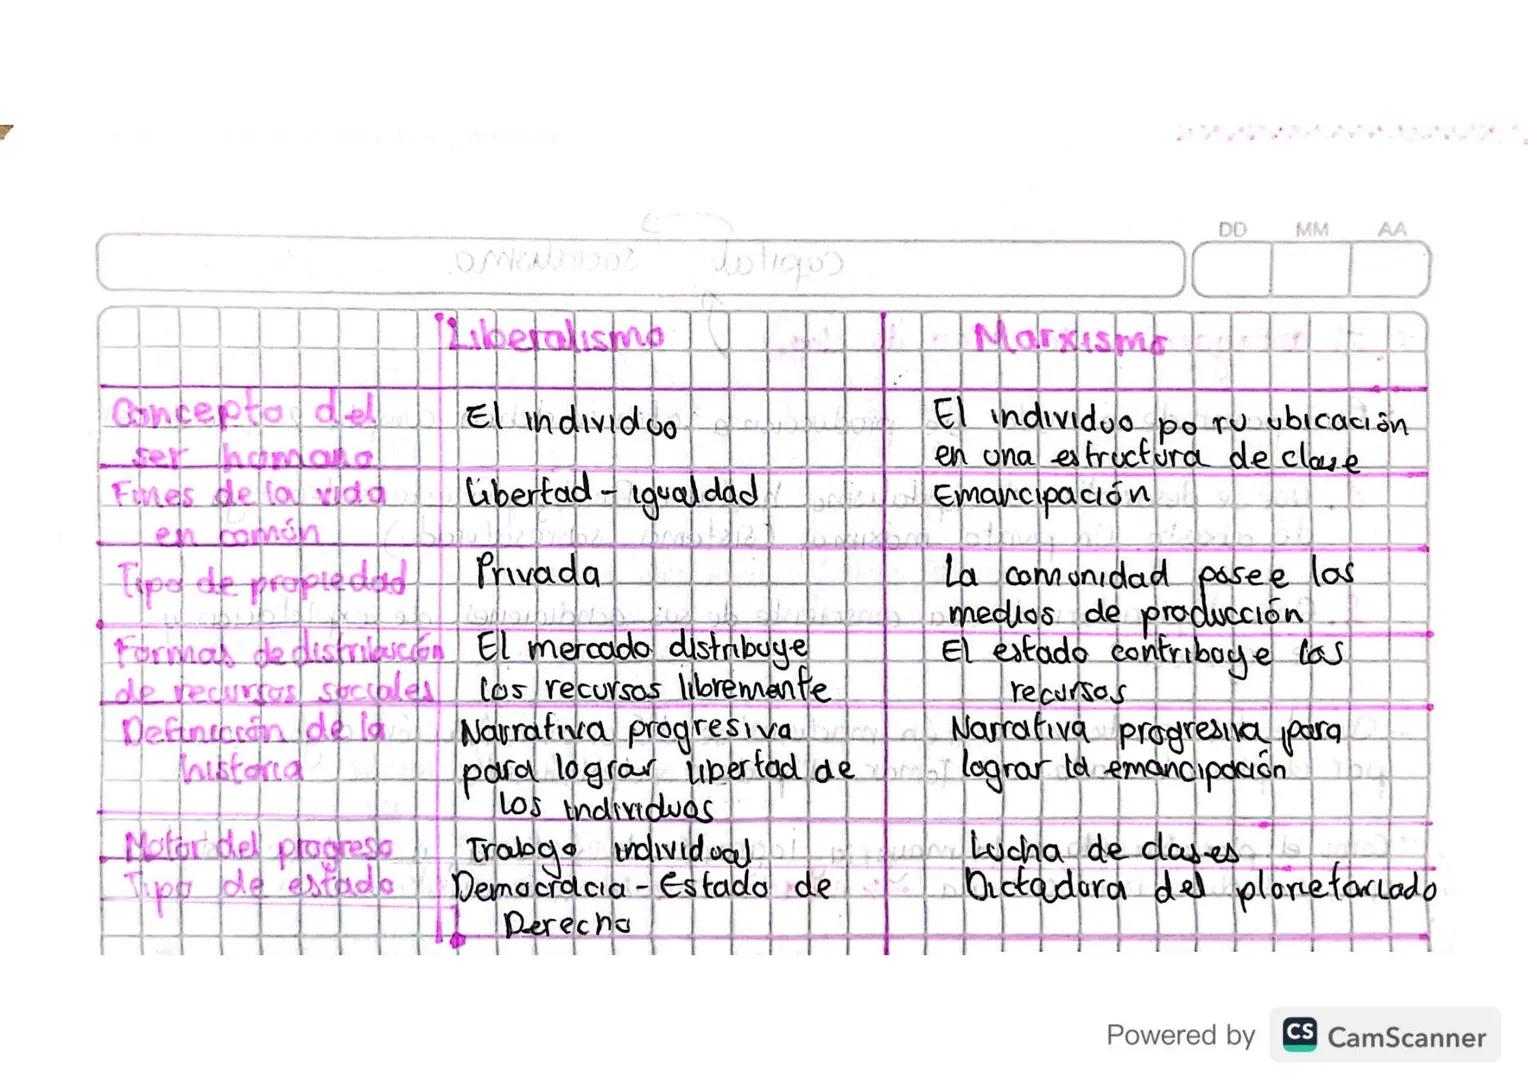 DD MM AA
Liberalismo Marxismo
Concepto del
ser humano
El individuo
El individuo po ru ubicación
en una estructura de clase
Fines de la vida
en común
Libertad - igualdad
Emancipación
Tipo de propiedad
Privada
La comunidad posee los
medios de producción
Formas de distribución
de recursos sociales
El mercado distribuye
los recursos libremente
El estado contribuye los
recursos
Definición de la
historia
Narrativa progresiva
para lograr libertad de
los individuos
Narrativa progresiva para
lograr la emancipación
Motor del progreso
Trabajo individual
Lucha de clases
Tipo de estado
Democracia - Estado de
Derecho
Dictadura del plorietariado
Powered by CS CamScanner